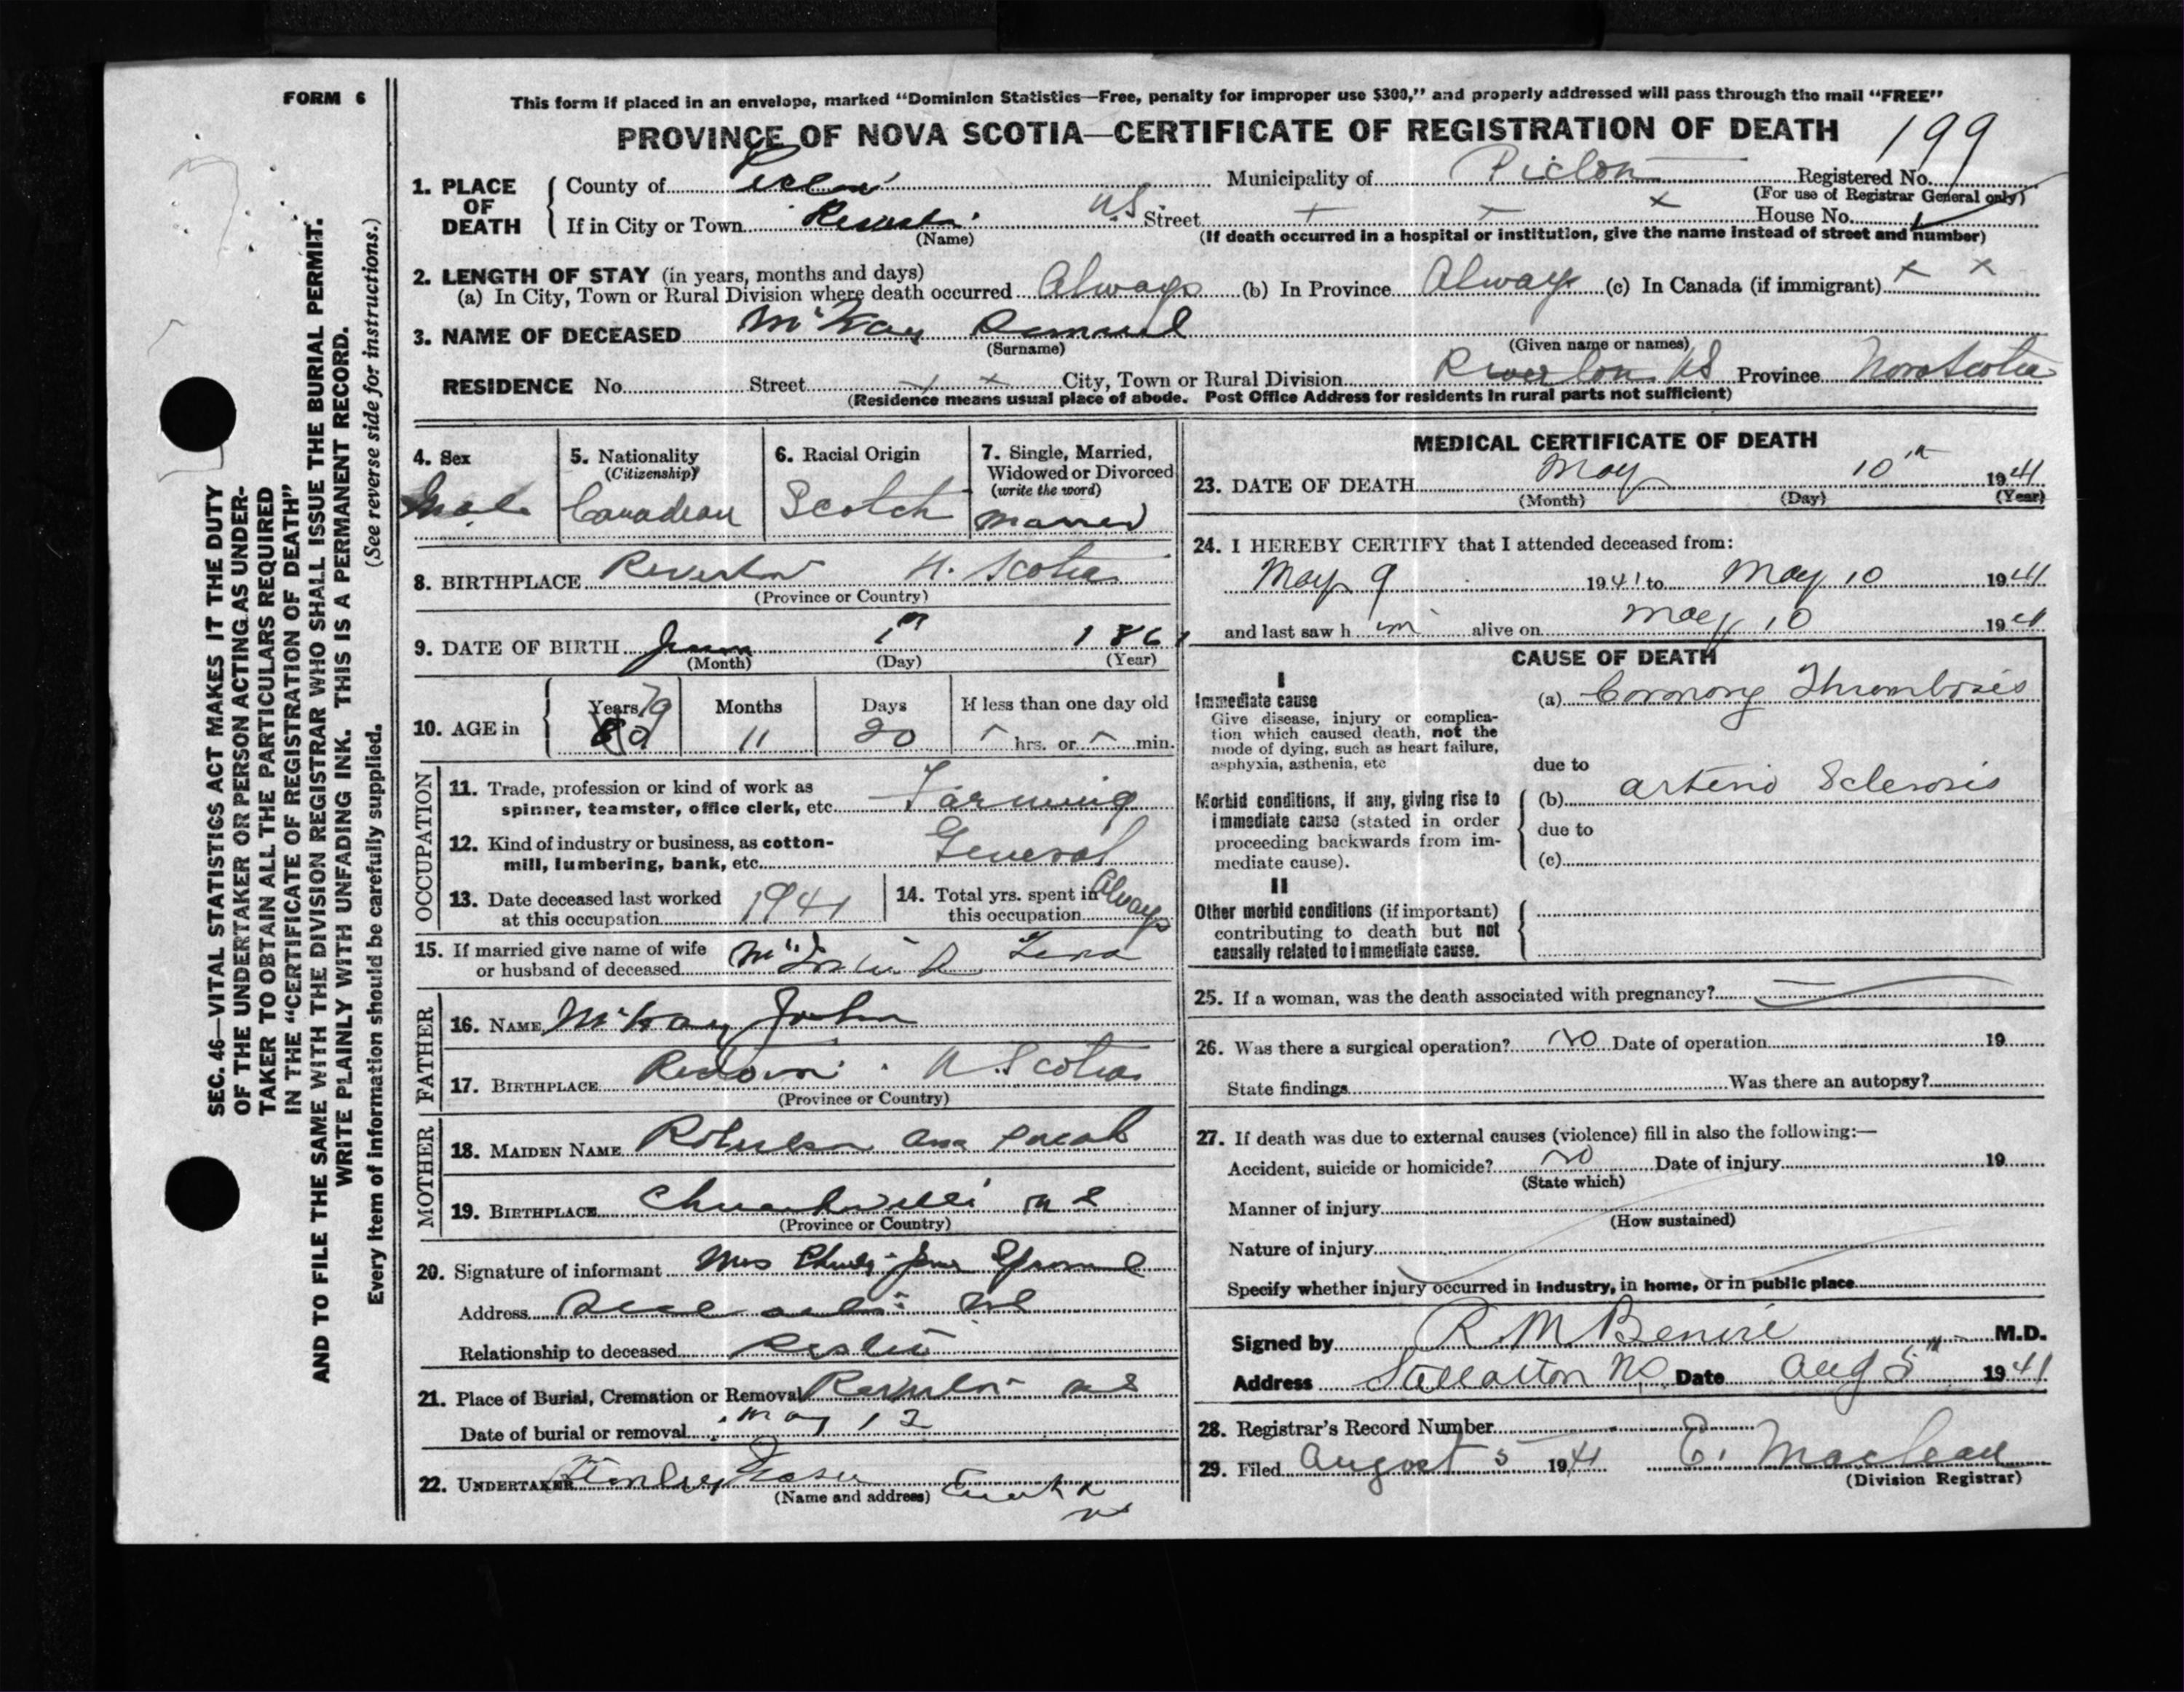 FORM 6
This form if placed in an envelope, marked "Dominion Statistics—Free, penalty for improper use $300," and properly addressed will pass through the mail "FREE"
PROVINCE OF NOVA SCOTIA—CERTIFICATE OF REGISTRATION OF DEATH
199
1. PLACE OF DEATH
County of Municipality of Pictou Registered No.
(For use of Registrar General only)
If in City or Town N.S. Street House No.
(Name) (If death occurred in a hospital or institution, give the name instead of street and number)
2. LENGTH OF STAY (in years, months and days)
(a) In City, Town or Rural Division where death occurred Always (b) In Province Always (c) In Canada (if immigrant) x x
3. NAME OF DECEASED McKay
(Surname) (Given name or names)
RESIDENCE No. Street x x City, Town or Rural Division Riverton NS Province Nova Scotia
(Residence means usual place of abode. Post Office Address for residents in rural parts not sufficient)
4. Sex
Male
5. Nationality
(Citizenship)
Canadian
6. Racial Origin
Scotch
7. Single, Married, Widowed or Divorced
(write the word)
Married
8. BIRTHPLACE Riverton N. Scotia
(Province or Country)
9. DATE OF BIRTH 1861
(Month) (Day) (Year)
10. AGE in
Years Months Days If less than one day old
79 11 20 hrs. or min.
OCCUPATION
11. Trade, profession or kind of work as
spinner, teamster, office clerk, etc. Farming
12. Kind of industry or business, as cotton-
mill, lumbering, bank, etc. General
13. Date deceased last worked
at this occupation 1941
14. Total yrs. spent in
this occupation Always
15. If married give name of wife
or husband of deceased
FATHER
16. NAME McKay John
17. BIRTHPLACE N. Scotia
(Province or Country)
MOTHER
18. MAIDEN NAME
19. BIRTHPLACE
(Province or Country)
20. Signature of informant Mrs
Address
Relationship to deceased
21. Place of Burial, Cremation or Removal Riverton NS
Date of burial or removal May 12
22. UNDERTAKER
(Name and address)
MEDICAL CERTIFICATE OF DEATH
23. DATE OF DEATH May 10th 1941
(Month) (Day) (Year)
24. I HEREBY CERTIFY that I attended deceased from:
May 9 1941 to May 10 1941
and last saw him alive on May 10 1941
CAUSE OF DEATH
I
Immediate cause
Give disease, injury or complica-
tion which caused death, not the
mode of dying, such as heart failure,
asphyxia, asthenia, etc
(a) Coronory Thrombosis
due to
Morbid conditions, if any, giving rise to
immediate cause (stated in order
proceeding backwards from im-
mediate cause).
(b) Arterio Sclerosis
due to
(c)
II
Other morbid conditions (if important)
contributing to death but not
causally related to immediate cause.
25. If a woman, was the death associated with pregnancy?
26. Was there a surgical operation? No Date of operation 19
State findings Was there an autopsy?
27. If death was due to external causes (violence) fill in also the following:—
Accident, suicide or homicide? No Date of injury 19
(State which)
Manner of injury
(How sustained)
Nature of injury
Specify whether injury occurred in industry, in home, or in public place
Signed by R. M. M.D.
Address Stellarton NS Date Aug 5th 1941
28. Registrar's Record Number
29. Filed August 5 1941 E. Maclean
(Division Registrar)
SEC. 46—VITAL STATISTICS ACT MAKES IT THE DUTY
OF THE UNDERTAKER OR PERSON ACTING AS UNDER-
TAKER TO OBTAIN ALL THE PARTICULARS REQUIRED
IN THE "CERTIFICATE OF REGISTRATION OF DEATH"
AND TO FILE THE SAME WITH THE DIVISION REGISTRAR WHO SHALL ISSUE THE BURIAL PERMIT.
WRITE PLAINLY WITH UNFADING INK. THIS IS A PERMANENT RECORD.
Every item of information should be carefully supplied. (See reverse side for instructions.)